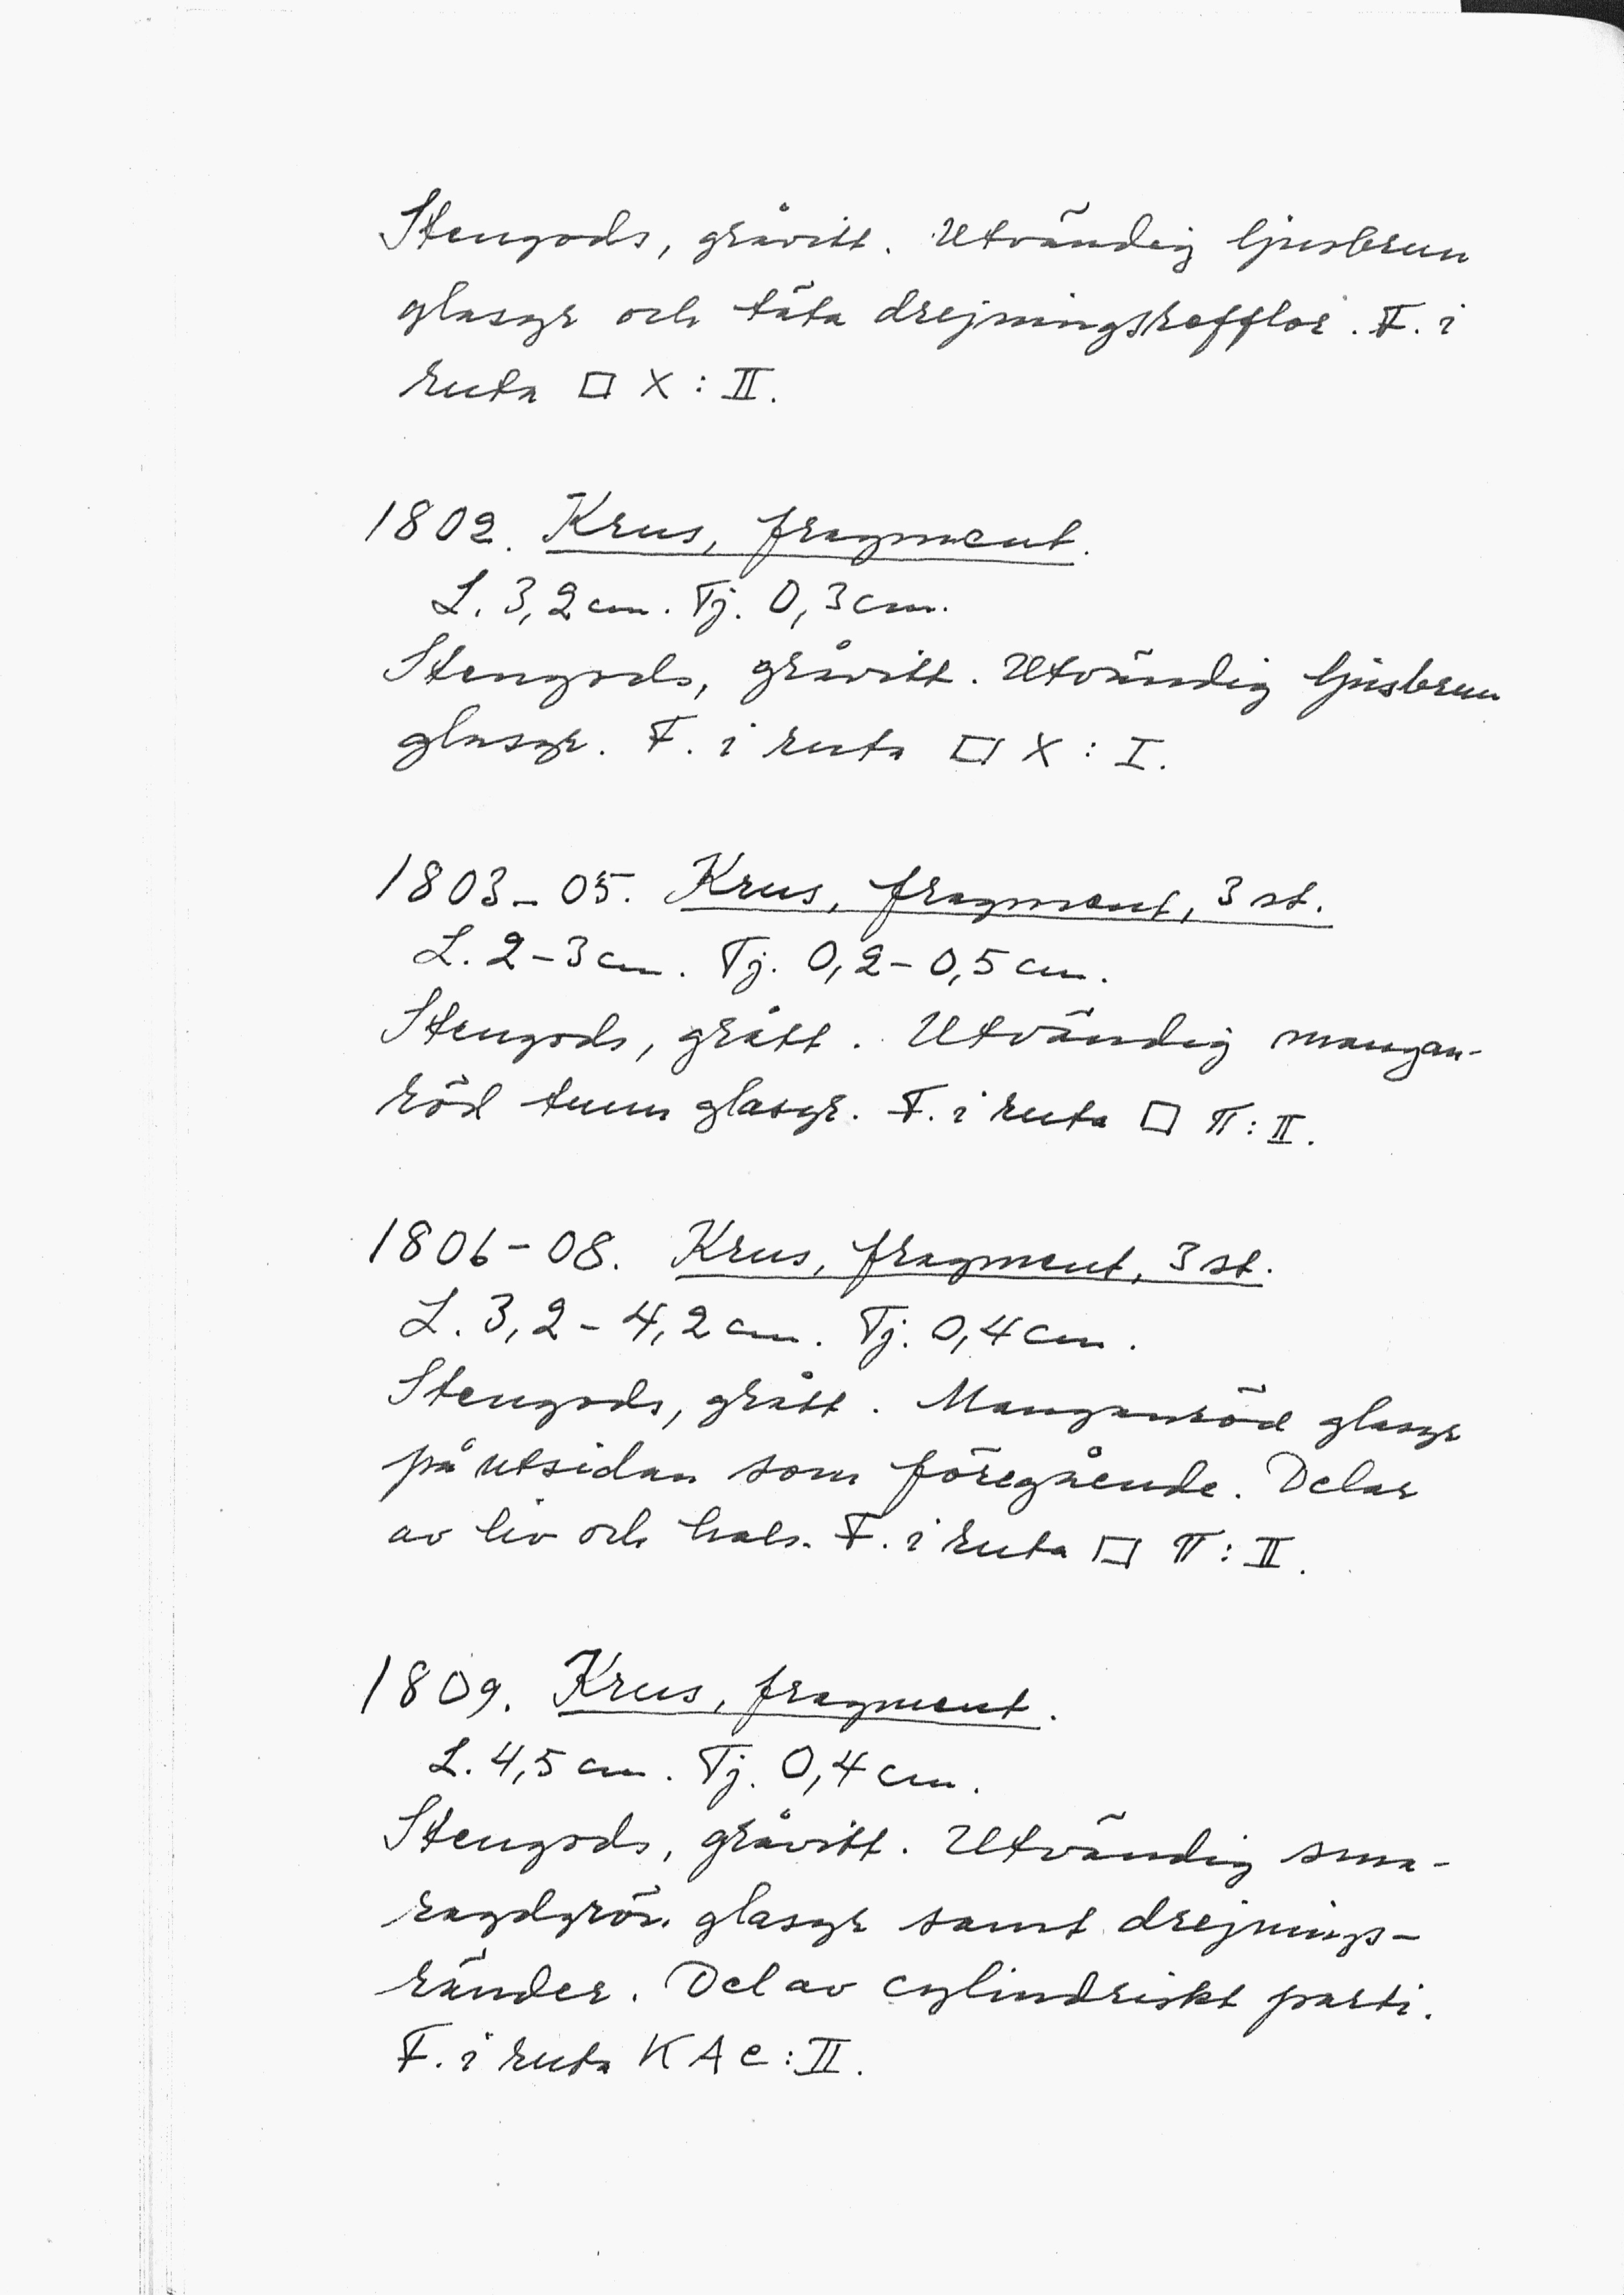 Stengods, gråvitt. Utvändig ljusbrun
glasyr och täta drejningsrefflor. F. i
ruta □ X : II.
1802. Krus, fragment.
L. 3,2 cm. Tj. 0,3 cm.
Stengods, gråvitt. Utvändig ljusbrun
glasyr. F. i ruta □ X : I.
1803-05. Krus, fragment, 3 st.
L. 2-3 cm. Tj. 0,2-0,5 cm.
Stengods, grått. Utvändig mangan-
röd tunn glasyr. F. i ruta □ π : II.
1806-08. Krus, fragment, 3 st.
L. 3,2-4,2 cm. Tj. 0,4 cm.
Stengods, grått. Manganröd glasyr
på utsidan som föregående. Delar
av liv och hals. F. i ruta □ π : II.
1809. Krus, fragment.
L. 4,5 cm. Tj. 0,4 cm.
Stengods, gråvitt. Utvändig sma-
ragdgrön glasyr samt drejnings-
ränder. Del av cylindriskt parti.
F. i ruta K A e : II.